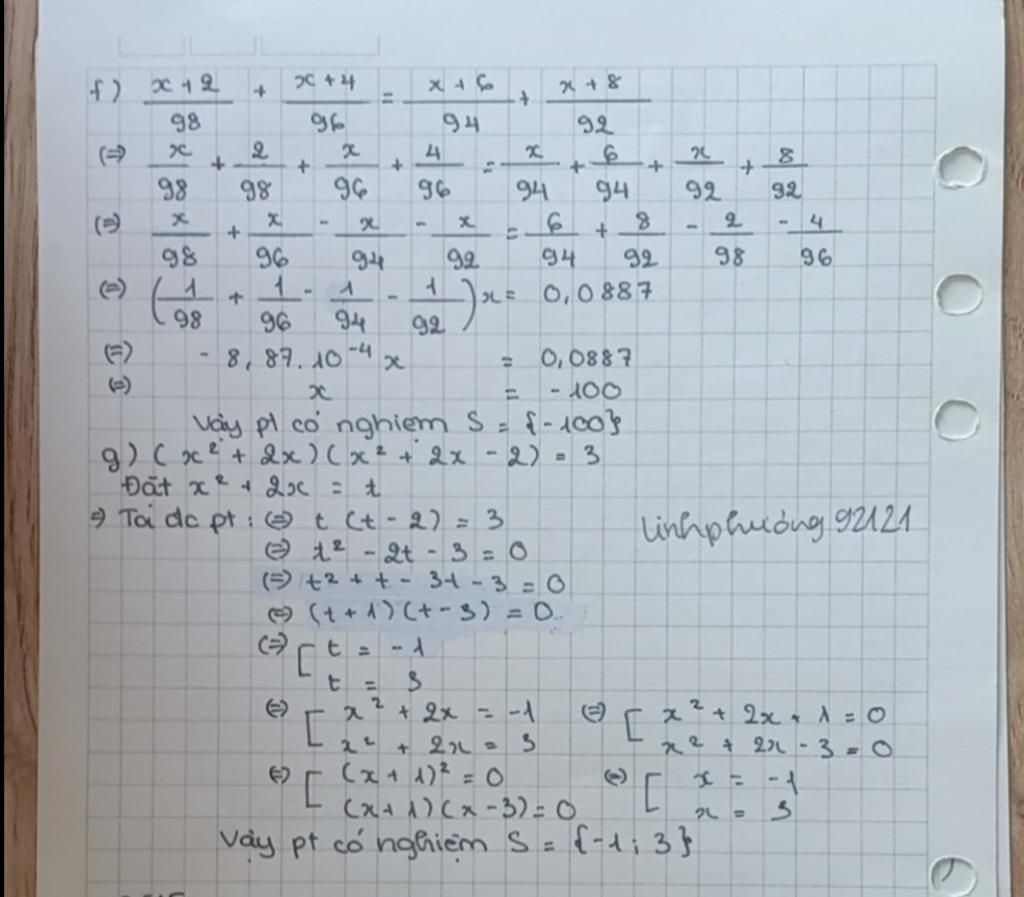 f) (x + 2)/98 + (x + 4)/96 = (x + 6)/94 + (x + 8)/92
(=) x/98 + 2/98 + x/96 + 4/96 = x/94 + 6/94 + x/92 + 8/92
(=) x/98 + x/96 - x/94 - x/92 = 6/94 + 8/92 - 2/98 - 4/96
(=) (1/98 + 1/96 - 1/94 - 1/92)x = 0,0887
(=) - 8,87.10⁻⁴ x = 0,0887
(=) x = - 100
Vậy pt có nghiệm S = {-100}
g) (x² + 2x)(x² + 2x - 2) = 3
Đặt x² + 2x = t
=> Ta dc pt : (=) t (t - 2) = 3
linhphuong92121
(=) t² - 2t - 3 = 0
(=) t² + t - 3t - 3 = 0
(=) (t + 1)(t - 3) = 0
(=) [ t = - 1
t = 3
(=) [ x² + 2x = -1 (=) [ x² + 2x + 1 = 0
x² + 2x = 3 x² + 2x - 3 = 0
(=) [ (x + 1)² = 0 (=) [ x = -1
(x + 1)(x - 3) = 0 x = 3
Vậy pt có nghiệm S = {-1 ; 3}